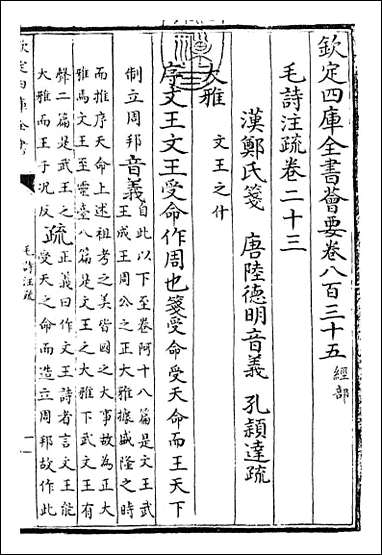 欽定四庫全書薈要卷八百三十五 經部
毛詩注疏卷二十三
漢鄭氏箋 唐陸德明音義 孔穎達疏
大雅 文王之什
序文王文王受命作周也箋受命受天命而王天下
制立周邦音義自此以下至卷阿十八篇是文王武
王成王周公之正大雅據盛隆之時
而推序天命上述祖考之美皆國之大事故為正大
雅焉文王至靈臺八篇是文王之大雅下武文王有
聲二篇是武王之
大雅而王于況反疏正義曰作文王詩者言文王能
受天之命而造立周邦故作此
欽定四庫全書
毛詩注疏
一